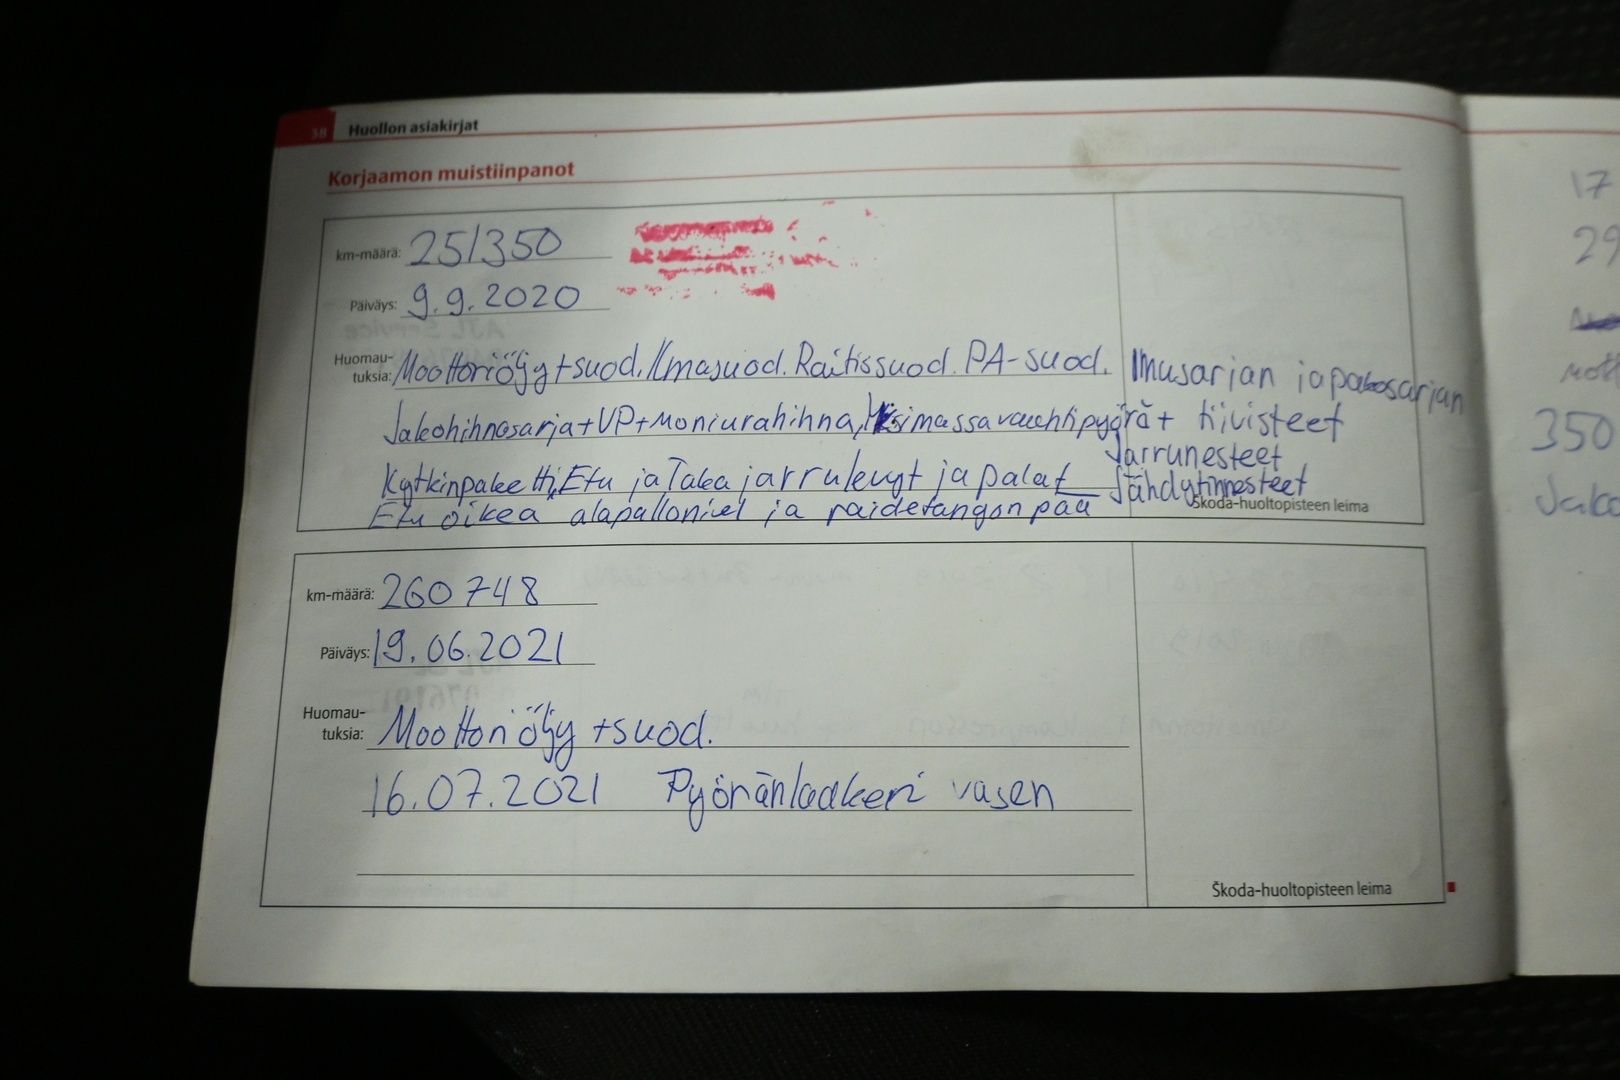 38 Huollon asiakirjat
Korjaamon muistiinpanot
km-määrä: 251350
Päiväys: 9.9.2020
Huomau-
tuksia: Moottoriöljy+suod. Ilmasuod. Raitissuod. PA-suod. Imusarjan ja pakosarjan
Jakohihnasarja+VP+Moniurahihna, Kaksimassavauhtipyörä+ tiivisteet
Jarrunesteet
Kytkinpaketti, Etu ja Taka jarrulevyt ja palat Jähdytinnesteet
Etu oikea alapallonivel ja raidetangon pää
Škoda-huoltopisteen leima
km-määrä: 260748
Päiväys: 19.06.2021
Huomau-
tuksia: Moottoriöljy +suod.
16.07.2021 Pyöränlaakeri vasen
Škoda-huoltopisteen leima
17
29
350